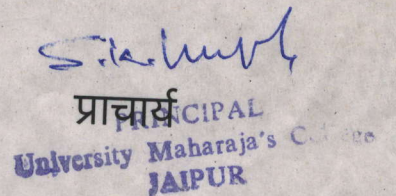 प्राचार्य
PRINCIPAL
University Maharaja's College
JAIPUR